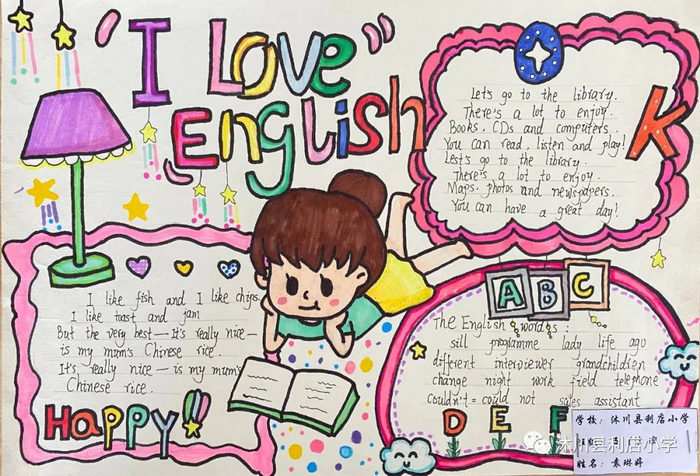 "I Love"
"English"
Let's go to the library.
There's a lot to enjoy.
Books, CDs and computers.
You can read, listen and play!
Lest's go to the library.
There's a lot to enjoy.
Maps, photos and newspapers.
You can have a great day!
K
I like fish and I like chips.
I like toast and jam
But the very best — It's really nice —
is my mum's Chinese rice.
It's really nice — is my mum's
Chinese rice.
HAPPY!!
ABC
The English words:
still programme lady life ago
different interviewer grandchildren
change night work field telephone
couldn't = could not sales assistant
DEF
学校: 沐川县利店小学
姓名: 袁琳婷
沐川县利店小学